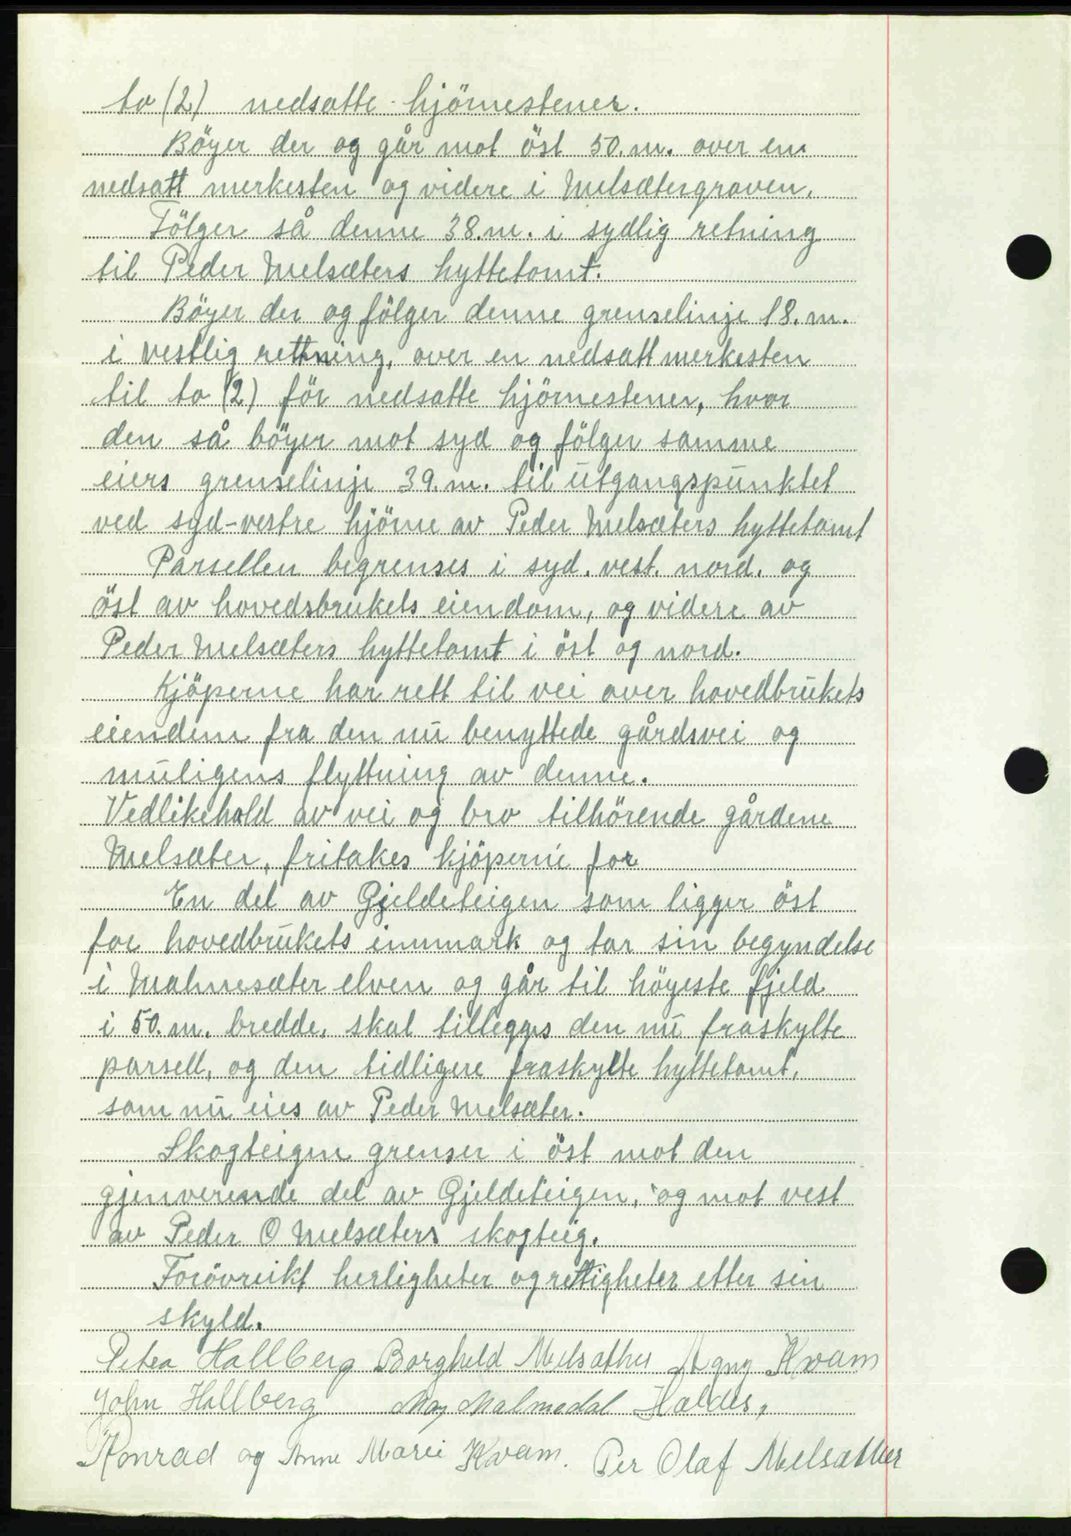 to (2) nedsatte hjörnestener.
Böyer der og går mot öst 50.m. over en
nedsatt merkesten og videre i Melsætergraven.
Fölger så denne 38.m. i sydlig retning
til Peder Melsæters hyttetomt.
Böyer der og fölger denne grenselinje 18.m.
i vestlig rettning, over en nedsatt merkesten
til to (2) för nedsatte hjörnestener, hvor
den så böyer mot syd og fölger samme
eiers grenselinje 39.m. til utgangspunktet
ved syd-vestre hjörne av Peder Melsæters hyttetomt
Parsellen begrenses i syd. vest. nord. og
öst av hovedsbrukets eiendom, og videre av
Peder Melsæters hyttetomt i öst og nord.
Kjöperne har rett til vei over hovedbrukets
eiendem fra den nu benyttede gårdsvei og
muligens flyttning av denne.
Vedlikehold av vei og bro tilhörende gårdene
Melsæter, fritakes kjöperne for
En del av Gjeldeteigen som ligger öst
for hovedbrukets innmark og tar sin begyndelse
i Malmesæter elven og går til höyeste fjeld
i 50.m. bredde, skal tillegges den nu fraskylte
parsell, og den tidligere fraskylte hyttetomt,
som nu eies av Peder Melsæter.
Skogteigen grenser i öst mot den
gjenverende del av Gjeldeteigen, og mot vest
av Peder O Melsæters skogteig.
Forövrikt herligheter og rettigheter etter sin
skyld.
Petra Hallberg Borghild Melsæther Agny Kvam
John Hallberg May Malmedal Haldis,
Konrad og Anne Marie Kvam. Per Olaf Melsæther